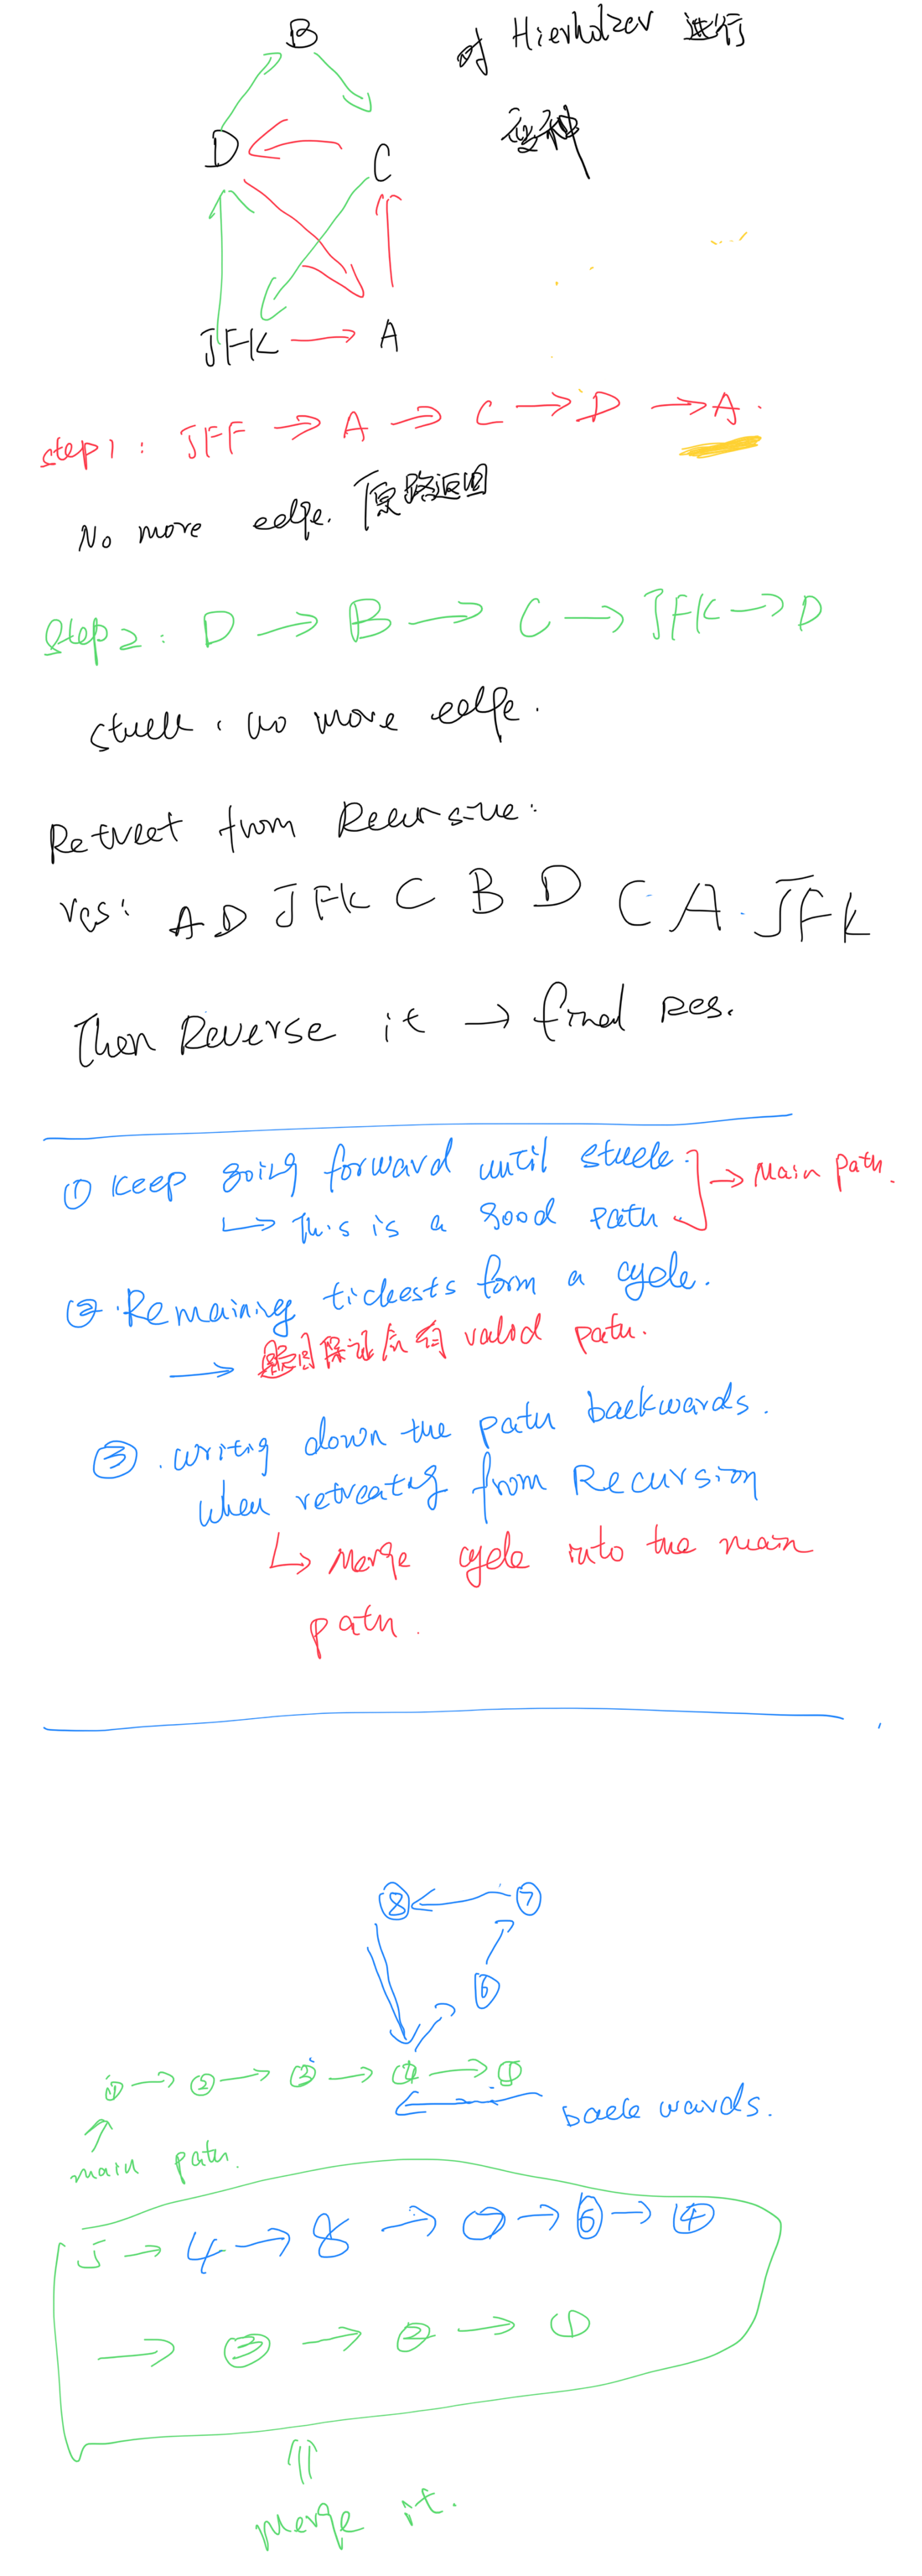 B
对 Hierholzer 进行
变种
D
C
JFK → A
step1: JFF → A → C → D → A.
No more edge. 原路返回
Step2: D → B → C → JFK → D
stuck, no more edge.
Retreet from Recursive:
res: A D JFK C B D C A. JFK
Then Reverse it → final res.
① Keep going forward until stuck. → Main path.
↳ This is a good path.
②. Remaining tickests form a cycle.
→ 题目保证有 valid path.
③. writing down the path backwards.
when retreating from Recursion
↳ Merge cycle into the main
path.
⑧ ← ⑦
⑥
① → ② → ③ → ④ →
backwards.
main path.
5 → 4 → 8 → → ⑥ → ④
→ ③ → ② → ①
Merge it.